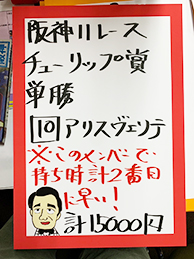 阪神11レース
チューリップ賞
単勝
10 アリスヴェリテ
※このメンバーで
持ち時計2番目
に早い!
計15000円